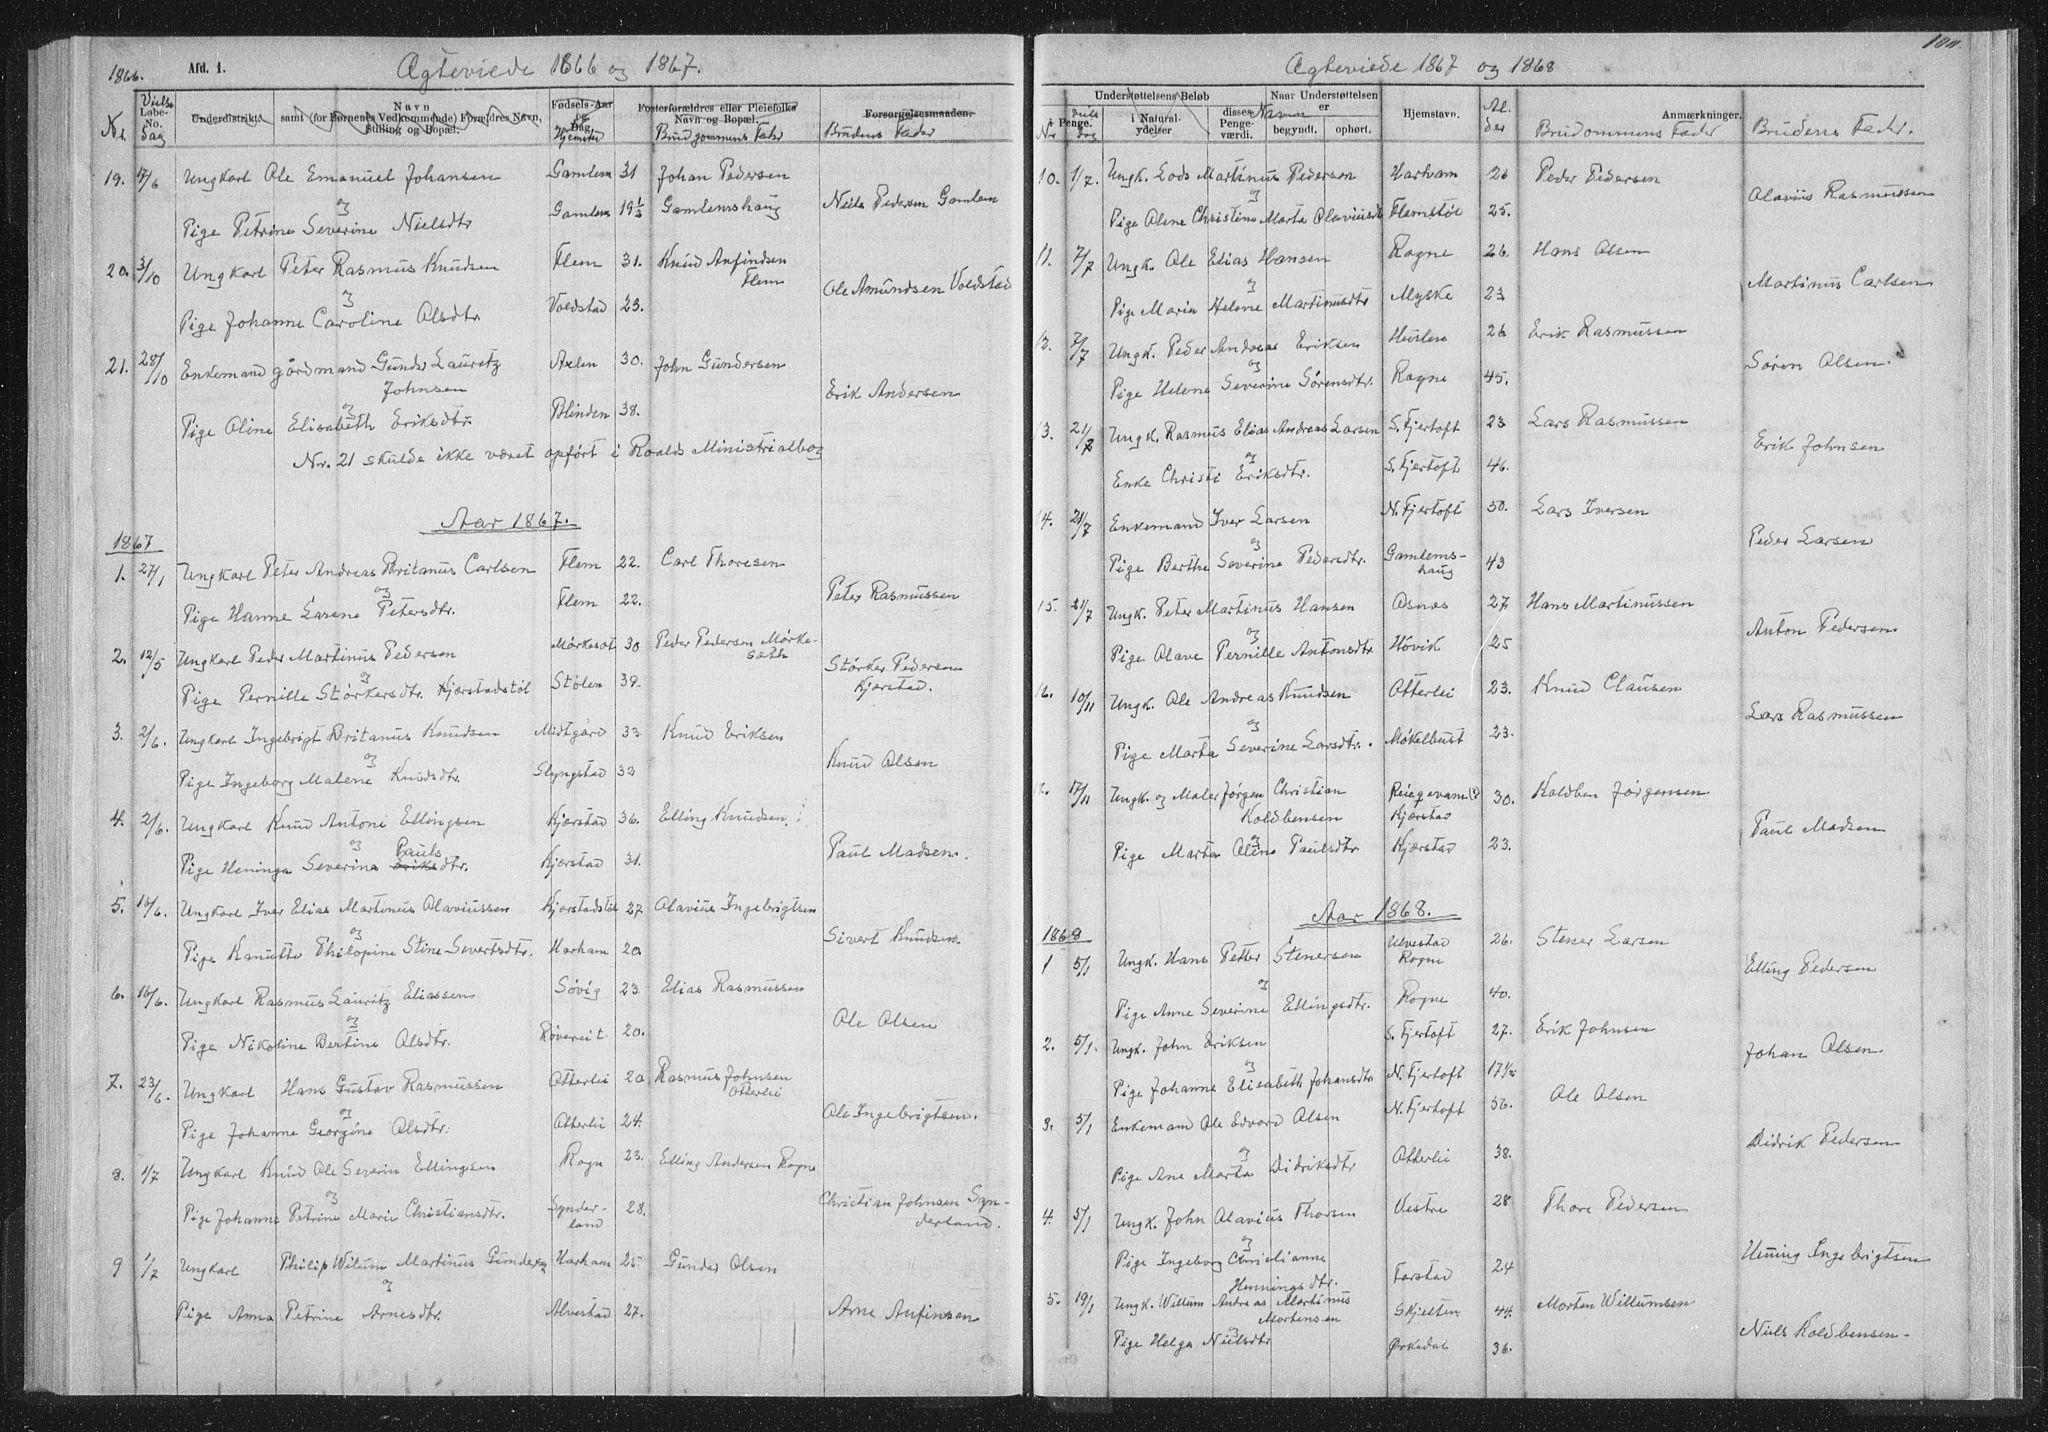 1866. Afd. 1. Ægteviede 1866 og 1867.
Nr. Vielses Løbe-No. Dag Underdistrikt. Navn samt (for Børnenes Vedkommende) Forældres Navn, Stilling og Bopæl. Fødsels-Aar og Dag. Hjemsted Fosterforældres eller Pleiefolks Navn og Bopæl. Brudgommens Fader Forsørgelsesmaaden. Brudens Fader
19. 4/6 Ungkarl Ole Emanuel Johansen Gamlem 31 Johan Pedersen
og Gamlem 19 1/2 Gamlemshaug Niels Pedersen Gamlem
Pige Petrine Severine Nielsdtr
20. 3/10 Ungkarl Peter Rasmus Knudsen Flem 31. Knud Anfindsen
Flem
og Ole Amundsen Voldstad
Pige Johanne Caroline Olsdtr. Voldstad 23.
21. 28/10 Enkemand gårdmand Gunder Lauritz Axlen 30. John Gundersen
Johnsen Erik Andersen
og
Pige Oline Elisabeth Eriksdtr. Blinden 38.
Nr. 21 skulde ikke været opført i Roalds Ministrialbog
Aar 1867.
1867
1. 27/1 Ungkarl Peter Andreas Britanus Carlsen Flem 22. Carl Thoresen
og Peter Rasmussen
Pige Hanne Larene Petersdtr. Flem 22.
2. 12/5 Ungkarl Peder Martinus Pedersen Mørkesæt 30 Peder Pedersen Mørke-
sæth
og Størker Pedersen
Pige Pernille Størkersdtr. Kjærstadstøl Stølen 39. Kjærstad.
3. 2/6. Ungkarl Ingebrigt Britanus Knudsen Midtgård 33 Knud Eriksen
og Knud Olsen
Pige Ingeborg Malene Knudsdtr. Slyngstad 32
4. 2/6. Ungkarl Knud Antoni Ellingsen Kjærstad 36. Elling Knudsen
og Pauls Paul Madsen.
Pige Heninga Severina Eriksdtr. Kjærstad 31.
5. 16/6. Ungkarl Iver Elias Martinus Olaviussen Kjærstadstøl 27. Olavius Ingebrigtsen
og Sivert Knudsen.
Pige Kanutte Philopine Stine Severtsdtr. Harham 20.
6. 16/6. Ungkarl Rasmus Lauritz Eliassen Søvig 23 Elias Rasmussen
og Ole Olsen
Pige Nikoline Bertine Olsdtr. Røvereit 20.
7. 23/6. Ungkarl Hans Gustav Rasmussen Otterlei 20 Rasmus Johnsen
Otterlei
og Ole Ingebrigtsen.
Pige Johanne Georgine Olsdtr. Otterlei 24.
8. 1/7 Ungkarl Knud Ole Severin Ellingsen Rogn 23. Elling Andersen Rogne
og Christian Johnsen Syn-
Pige Johanne Petrine Marie Christiansdtr. Synder- 28. derland.
land
9 1/7 Ungkarl Philip Wilum Martinus Gundersen Harham 25 Gunder Olsen
og
Pige Anna Petrine Arnesdtr. Alvestad 27. Arne Anfinsen
100
Ægteviede 1867 og 1868
Understøttelsens Beløb Naar Understøttelsen er Hjemstavn. Al- der Anmærkninger.
Nr i Penge. Viels dag i Natural-ydelser. disses Penge-værdi. Navn begyndt. ophørt. Brudommens Fader Brudens Fader.
10. 1/7. Ungk. Lods Martinus Pedersen Harham 26 Peder Pedersen
og Olavius Rasmussen
Pige Olene Christine Marta Olaviusdt Flemstøl 25.
11. 7/7 Ungk. Ole Elias Hansen Rogne 26 Hans Olsen
og Martinus Carlsen
Pige Maria Helene Martinusdtr Myske 23
12. 7/7 Ungk. Peder Andreas Eriksen Huslen 26 Erik Rasmussen
og Søren Olsen.
Pige Helene Severine Sørensdtr. Rogne 45.
13. 21/7 Ungk. Rasmus Elias Andreas Larsen S. Fjertoft 23 Lars Rasmussen
og Erik Johnsen
Enke Christi Eriksdtr. S. Fjertoft 46.
14. 21/7 Enkemand Iver Larsen N. Fjertoft 50. Lars Iversen
og Peder Larsen
Pige Berthe Severine Pedersdtr. Gamlems- 43
haug
15. 21/7 Ungk. Peter Martinus Hansen Osnes 27 Hans Martinussen
og Anton Pedersen
Pige Olave Pernille Antonsdtr Høvik 25
16. 10/11 Ungk. Ole Andreas Knudsen Otterlei 23. Knud Clausen
og Lars Rasmussen
Pige Marta Severine Larsdtr. Møkelbust 23.
17/11 Ungk. og Maler Jørgen Christian 30. Koldben Jørgensen
Koldbensen Kjærstad
og Paul Madsen
Pige Marta Oline Paulsdtr Kjærstad 23.
Aar 1868.
1868
1 5/1 Ungk. Hans Petter Stenersen Ulvestad 26. Stener Larsen
Rogne
og Elling Pedersen
Pige Anne Severine Ellingsdtr. Rogne 40.
2. 5/1. Ungk. John Eriksen S. Fjertoft 27. Erik Johnsen
og Johan Olsen.
Pige Johanne Elisabeth Johansdtr N. Fjertoft 17 1/2
3. 5/1 Enkemand Ole Edvard Olsen N. Fjertoft 56. Ole Olsen
og Didrik Pedersen
Pige Ane Marta Didriksdtr Otterlei 38.
4. 5/1 Ungk. John Olavius Thorsen Vestre 28 Thore Pedersen
og Hening Ingebrigtsen
Pige Ingeborg Christianne
Hennings dtr. Farstad 24
5. 19/1 Ungk. Willum Andreas Martinus Skjelten 44. Morten Willumsen
Mortensen
og Niels Koldbensen.
Pige Helga Nielsdtr Ørkedal 36.